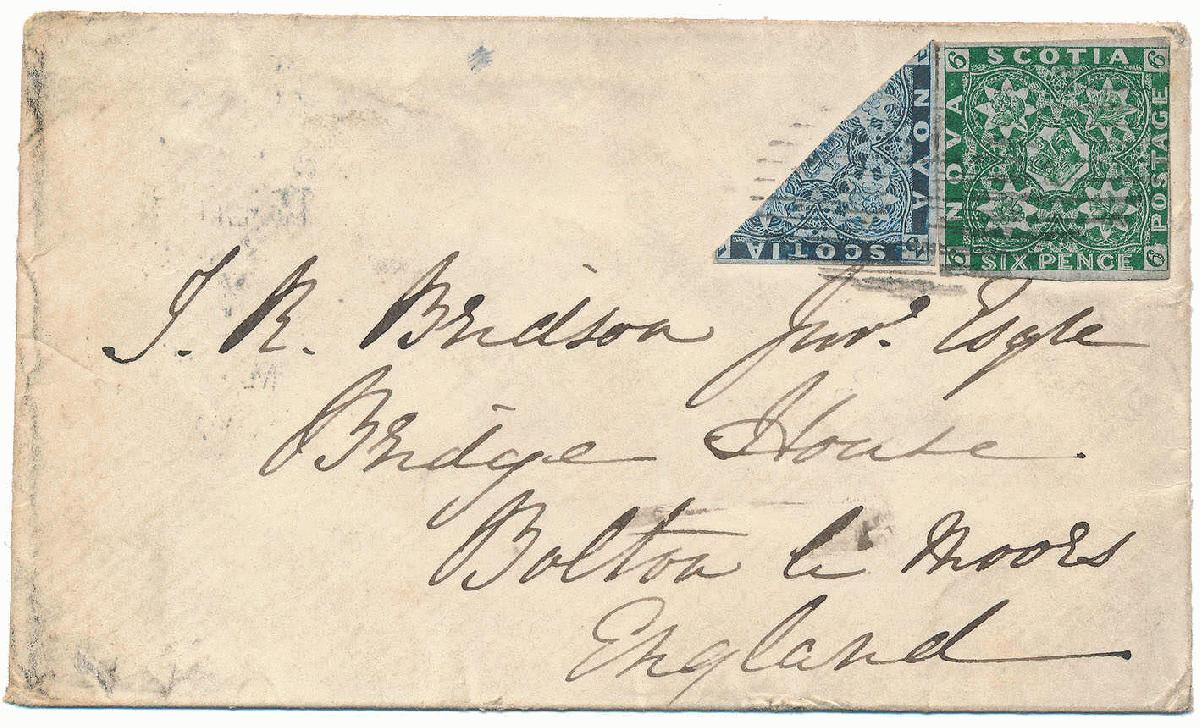 NOVA
SCOTIA
6 SCOTIA 6
NOVA
POSTAGE
6 SIX PENCE 6
J. R. Bridson Junr. Esqre
Bridge House.
Bolton le Moors
England